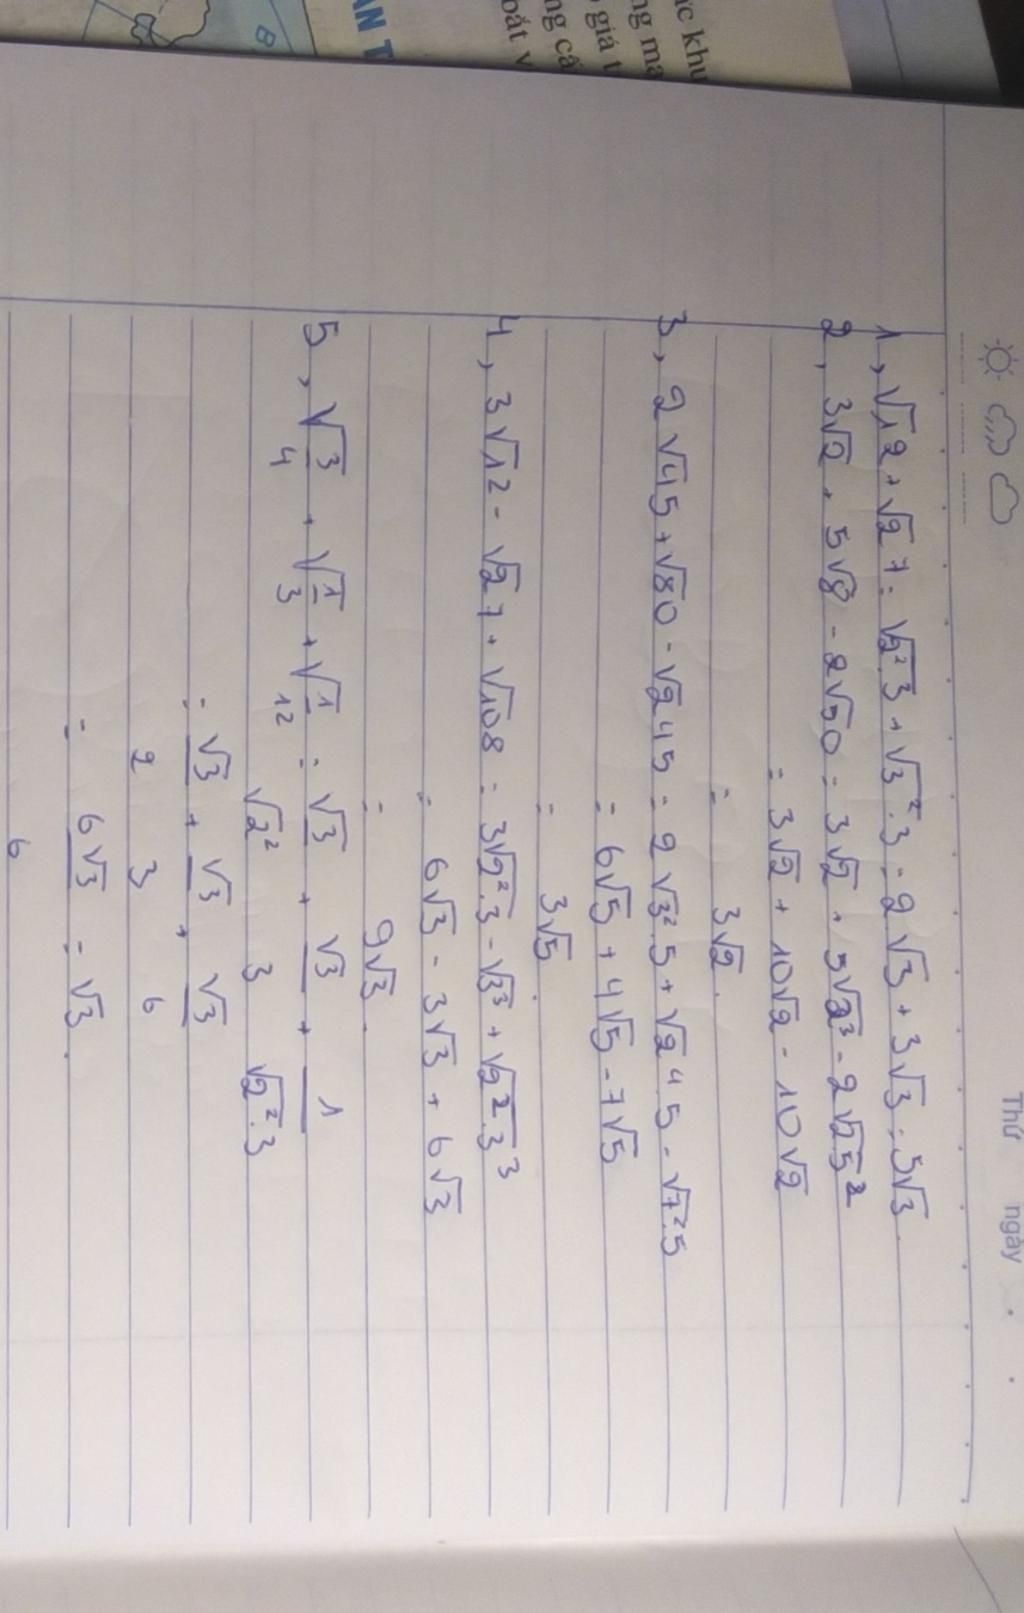 Thứ ngày
1, √12 + √27 = √2².3 + √3².3 = 2√3 + 3√3 = 5√3
2, 3√2 + 5√8 - 2√50 = 3√2 + 5√2³ - 2√2 5²
= 3√2 + 10√2 - 10√2
= 3√2.
3, 2√45 + √80 - √245 = 2√3².5 + √2⁴.5 - √7².5
= 6√5 + 4√5 - 7√5
= 3√5.
4, 3√12 - √27 + √108 = 3√2².3 - √3³ + √2².3³
= 6√3 - 3√3 + 6√3
= 9√3.
5, √3/4 + √1/3 + √1/12 = √3/√2² + √3/3 + 1/√2².3
= √3/2 + √3/3 + √3/6
= 6√3/6 = √3.
ực khu
ng ma
giá t
ng cá
bắt v
ÂN T
8